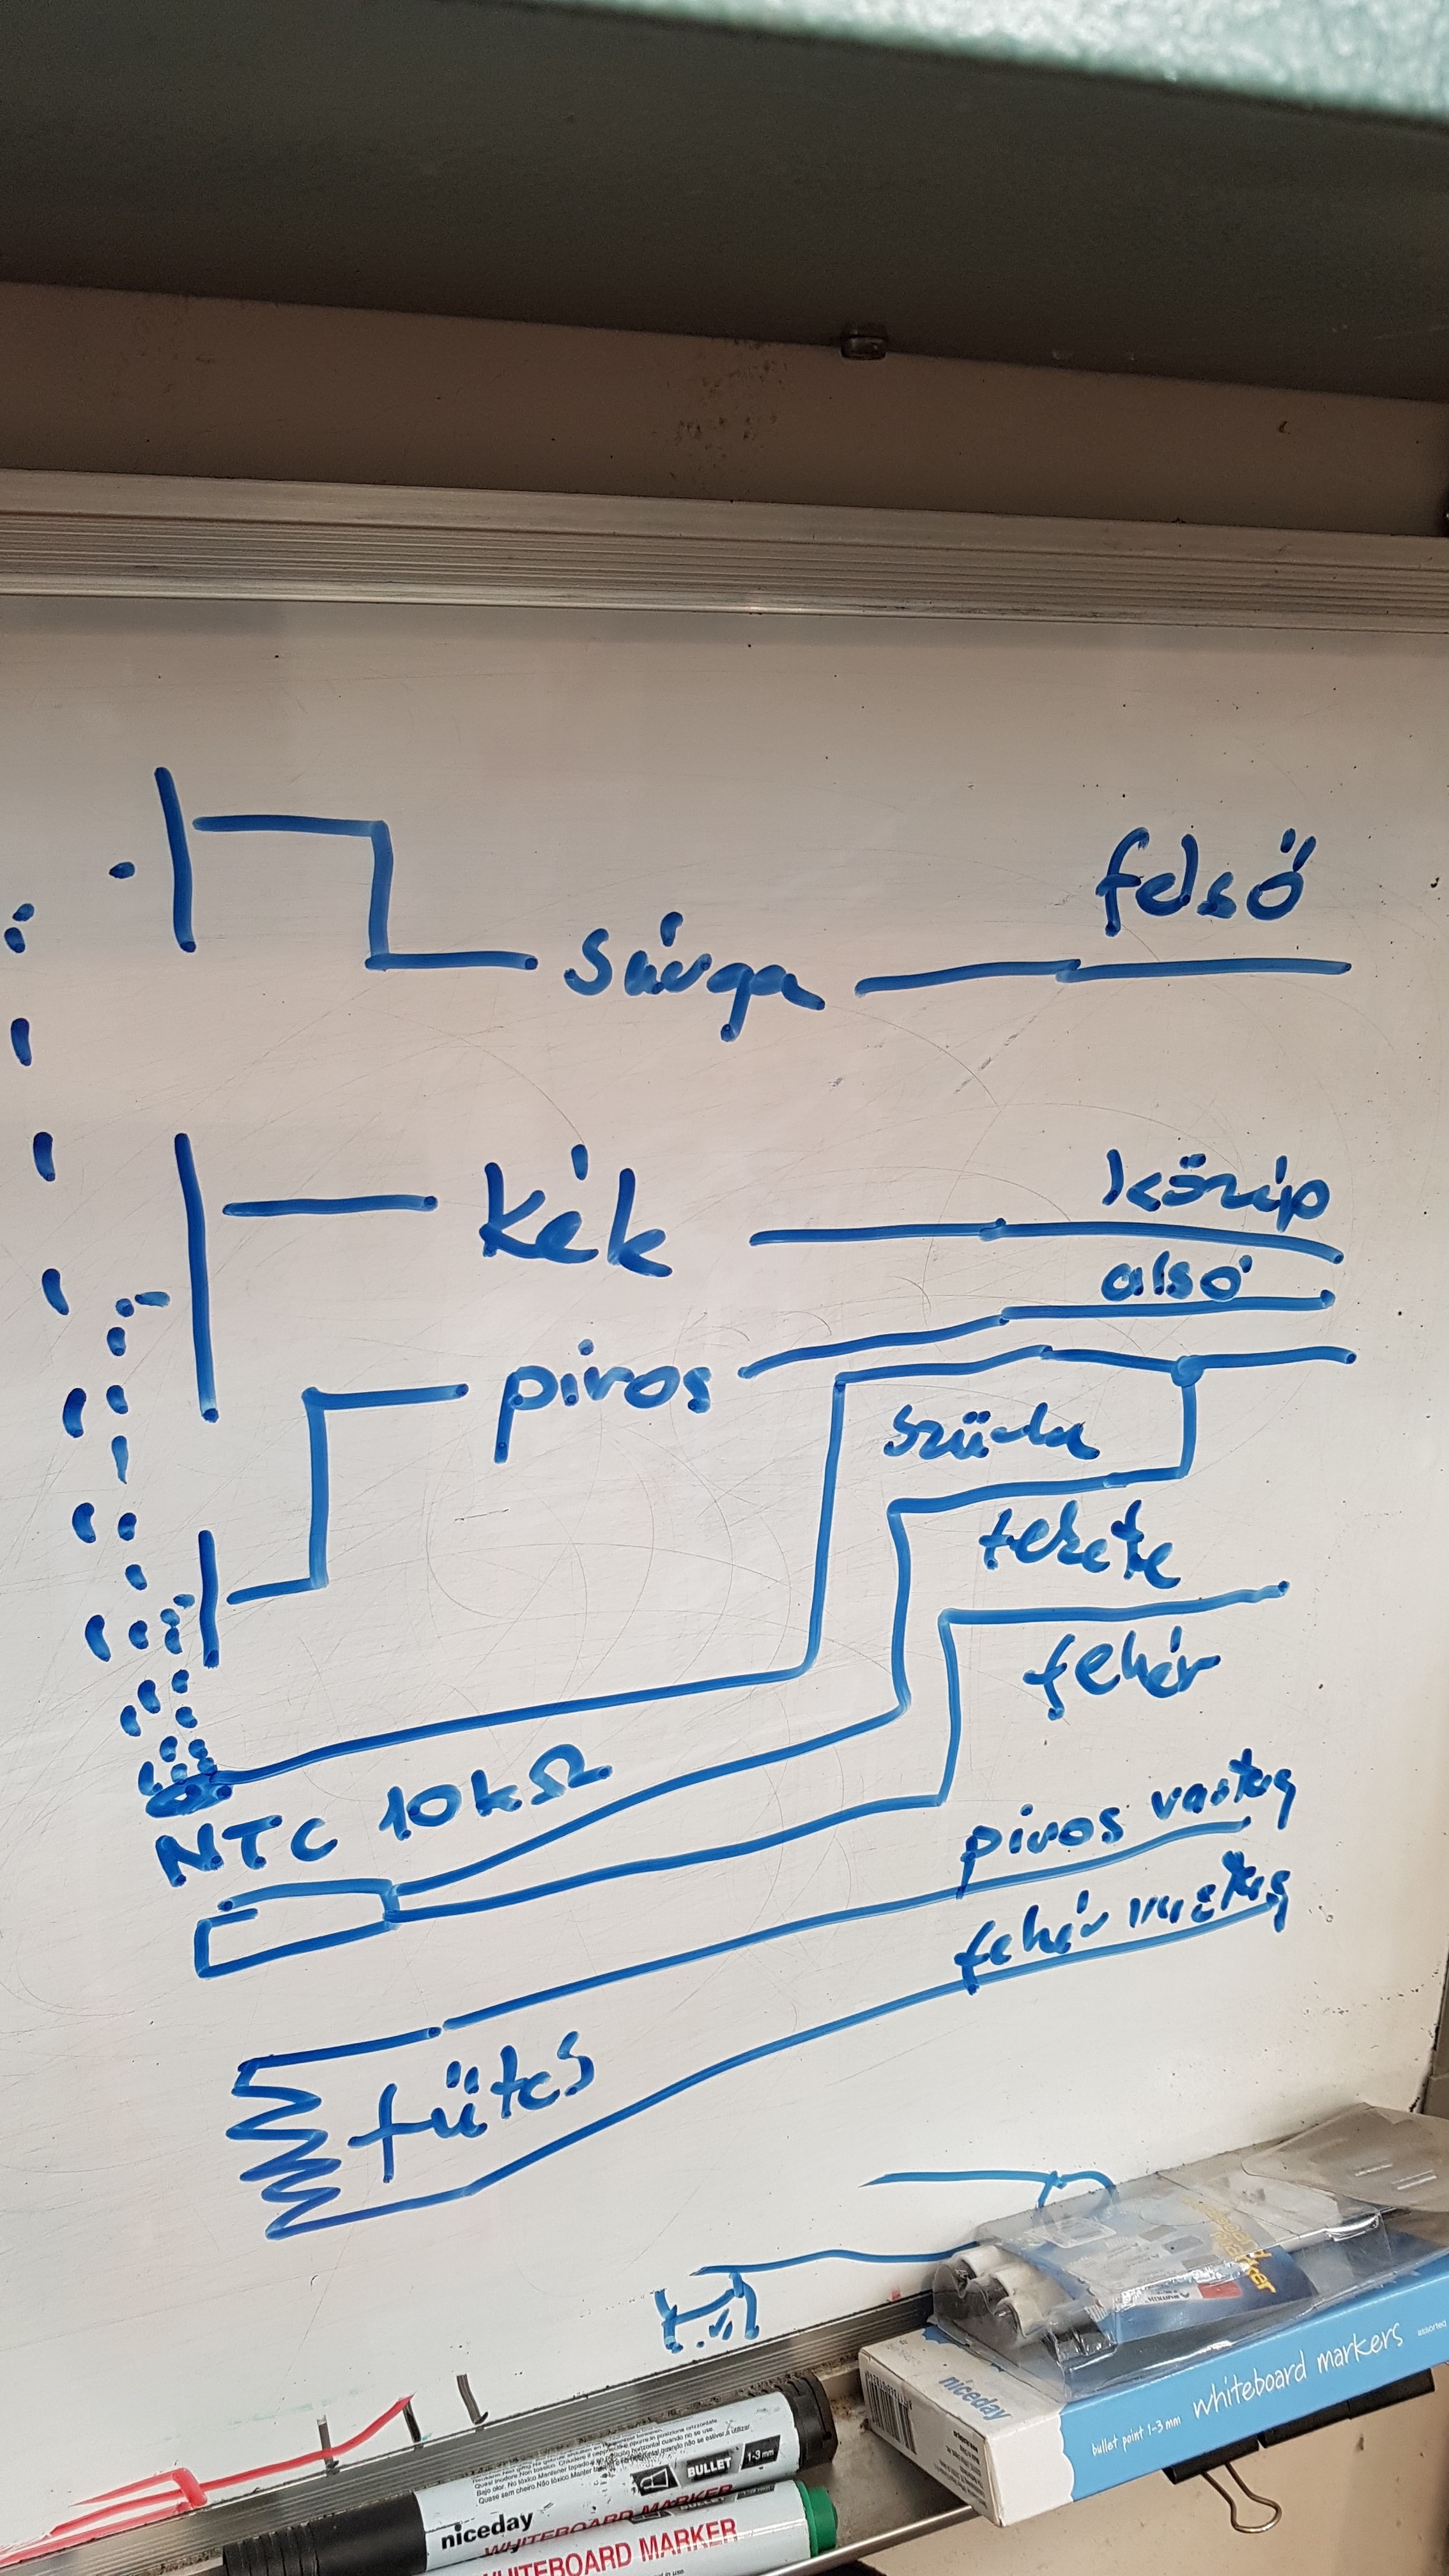 felső
sárga
közép
kék
alsó
piros
szürke
fekete
fehér
NTC 10kΩ
piros vastag
fehér vastag
fűtés
niceday
WHITEBOARD MARKER
BULLET
1-3 mm
WHITEBOARD MARKER
niceday
bullet point 1-3 mm
whiteboard markers
assorted